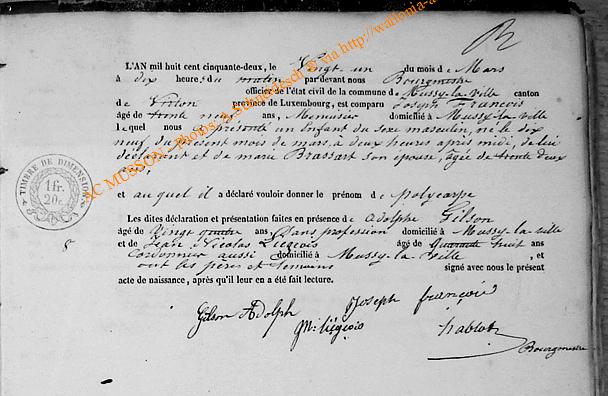 L'AN mil huit cent cinquante-deux, le Vingt un du mois de Mars
à dix heures du matin par devant nous Bourgmestre
officier de l'état civil de la commune de Mussy-la-ville canton
de Virton province de Luxembourg, est comparu Joseph François
âgé de trente neuf ans, Menuisier domicilié à Mussy-la-ville
lequel nous a présenté un Enfant du sexe masculin, né le dix
neuf, du présent mois de mars, à deux heures après midi, de lui
déclarant et de marie Brassart son épouse, âgée de trente deux
ans,
et auquel il a déclaré vouloir donner le prénom de polycarpe
Les dites déclaration et présentation faites en présence de adolphe Gilson
âgé de Vingt quatre ans, sans profession domicilié à Mussy-la-ville
et de Jean Nicolas Liégeois âgé de Quarante huit ans
Cordonnier aussi domicilié à Mussy-la Ville, et
ont les père et témoins signé avec nous le présent
acte de naissance, après qu'il leur en a été fait lecture.
Gilson Adolph Joseph françois
liégeois hablot
Bourgmestre
TIMBRE DE DIMENSION
1 fr.
20 c.
AC MUSSON - Photos : J. Schne via http://wallonia-a